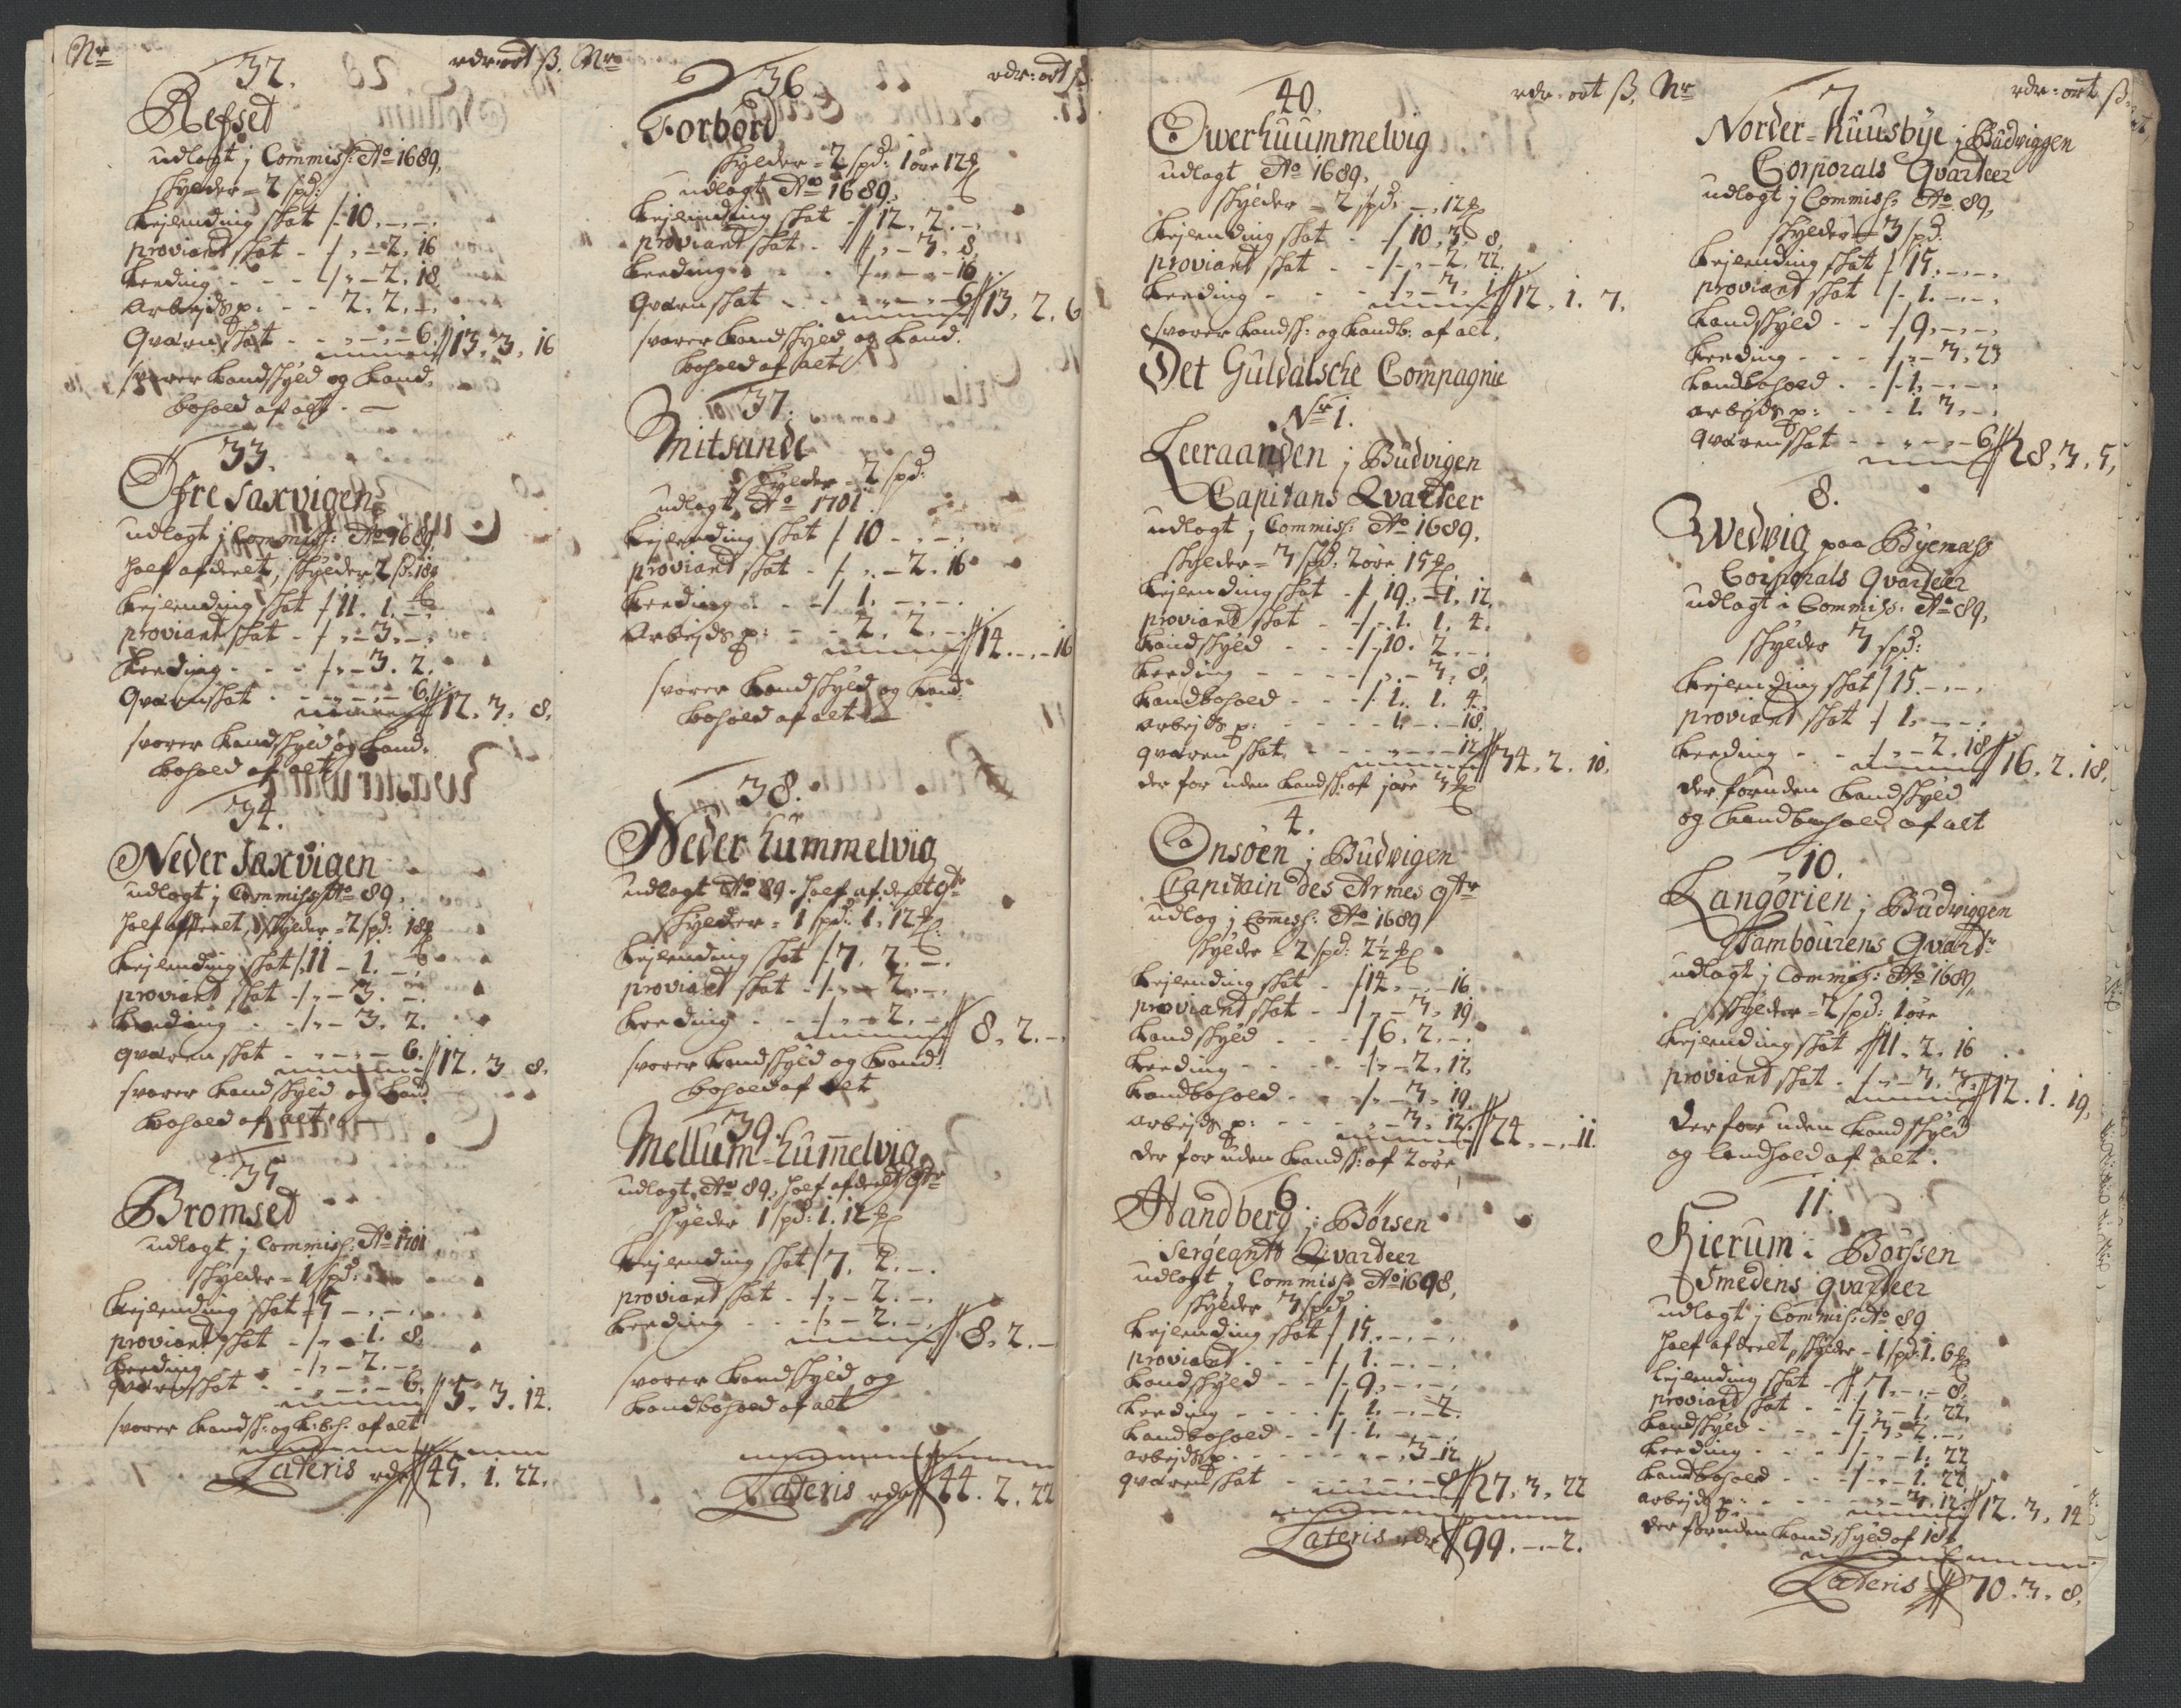 Nr rdr: ort ß.
32.
Refset
udlagt j Commiss: Ao 1689,
skylder = 2 spd:
Leylending skat /10. – . –
proviant skat - / „ – 2. 16
Leeding - - - / „ – 2. 18
Arbejds p: - - 2. 2. –.
Qvarn skat - - „ – „ – 6. // 13. 3. 16
svarer Landskyld og Land,
bohold af alt. –
33.
Øfre Saxvigen
udlagt j Commiss: Ao 1689,
half afdeelt, skylder 2 sp: 18
Leylending skat / 11. 1. –
proviant skat - / „ – 3. –.
Leeding - - - / „ – 3. 2.
Qvarnskat - - „ – „ – 6. // 12. 3. 8.
svarer Landskyld og Land,
bohold af alt
34.
Neder Saxvigen
udlagt j Commiss Ao 89.
half afdeelt, skylder = 2 spd: 18
Leylending skat / 11 – 1. –
proviant skat - / „ – 3. –.
Leeding - - / „ – 3. 2.
qvarn skat - - „ – „ – 6. // 12. 3. 8.
svarer Landskyld og Land
bohold af alt. –
35
Bromset
udlagt j Commiss: Ao 1701
skylder = 1 spd:
Leylending skat / 5 – . – .
proviant skat - / „ – 1. 8.
Leeding - - / „ – 2. –.
qvarn skat - - „ – „ – 6. // 5. 3. 14.
svarer Landsk: og L: b: h: af alt
Lateris rdr // 45. 1. 22.
Nr rdr: ort ß
36
Forbord
skylder = 2 spd: 1 øre 12
udlagt Ao 1689.
Leylending skat // 12. 2. –.
proviant skat - // „ – 3. 8,
Leeding - - - / „ – „ – 16
Qvarn skat - - - „ – „ – 6 // 13. 2. 6
svarer Landskyld og Land.
bohold af alt
37.
Mitsande
skylder = 2 spd:
udlagt Ao 1701.
Leylending skat / 10 – . – .
proviant skat - / „ – 2. 16
Leeding - - - / 1. – . – .
Arbejds p: - - 2. 2. – . // 14. – . – 16
svarer Landskyld og Land:
bohold af alt
38.
Neder hummelvig
udlagt Ao 89. half afdeelt qtr
skylder = 1 spd: 1. 12
Leylending skat / 7. 2. –.
proviant skat - / „ – 2. –.
Leeding - - - / „ – 2. – // 8. 2. –.
svarer Landskyld og Land:
bohold af alt
39.
Mellum=hummelvig
udlagt Ao 89, half afdeelt qtr
skylder 1 spd: 1. 12
Leylending skat / 7. 2. –.
proviant skat - / „ – 2. –.
Leeding - - - / „ – 2. – . // 8. 2. –
svarer Landskyld og
Landbohold af alt
Lateris rdr // 44. 2. 22
rdr: ort ß.
40.
Owerhuummelvig
udlagt Ao 1689.
skylder = 2 spd: – . 12
Leylending skat - - / 10. 3. 8.
proviant skat - - / „ – 2. 22.
Leeding - - - / „ – 3. 1 // 12. 1. 7.
svarer Landsk: og Landb: af alt.
Det Guldalsche Compagnie
Nr 1.
Leeraanden j Budvigen
Capitans Qvarteer
udlagt j Commiss: Ao 1689.
skylder = 3 spd: 2 øre 15
Leylending skat - / 19. – 1. 12.
proviant skat - / - 1. 1. 4.
Landskyld - - - / 10. 2. –.
Leeding - - - - / „ – 3. 8.
Landbohold - - - / 1. 1. 4.
arbejds p: - - - - 1. – . – 18.
qvarn skat - - - „ – „ – 12 // 34. 2. 10.
der for uden Landsk: af j øre 3
4.
Onsøen j Budvigen
Capitain des Armes qtr
udlag j Comiss: Ao 1689
skylder = 2 spd: 2 1/2
Leylending skat - / 12. – . – 16
proviant skat - / „ – 3. 19
Landskyld - - - / 6. 2. –.
Leeding - - - - / „ – 2. 12.
Landbohold - - - / „ – 3. 19.
arbejds p: - - - - „ – 3. 12. // 24. – . – 11.
der for uden Landsk: af 2 øre
6
Handberg j Børsen
Sergeants Qvarteer
udlagt j Commiss: Ao 1698,
skylder 3 spd
Leylending skat / 15. – . – .
proviant - - - / 1. – . – .
Landskyld - - / 9. – . – .
Leeding - - - - / 1. – . – 2.
Landbohold - - / 1. – . –
arbejds p - - - - - „ 3 12
qvarn skat - - „ – „ – 8 // 27. 3. 22
Lateris rdr // 99. – . – 2.
Nr rdr: ort ß.
7
Norder=huusbye j Budviggen
Corporals Qvarteer
udlagt j Commiss: Ao 89,
skylder = 3 spd:
Leylending skat / 15. – . – .
proviant skat / - 1. – . – .
Landskyld - - / 9. – . – .
Leeding - - - / „ – 3. 23
Landbohold - - / 1. – . – .
arbejds p: - - - 1. 3. –.
qvarn skat - - „ – „ – 6. // 28. 3. 5,
8.
Wedvig paa Byenæss
Corporals Qvarteer
udlagt i Commiss: Ao 89,
skylder 3 spd:
Leylending skat / 15. – . – .
proviant skat / 1. – . – .
Leeding - - - / „ – 2. 18 // 16. 2. 18.
der foruden Landskyld
og Landbohold af alt
10.
Langørien j Budviggen
Tambourens Qvartr
udlagt j Commiss: Ao 1689,
skylder = 2 spd: 1 øre
Leylending skat // 11. 2. 16
proviant skat - / „ – 3. 3. // 12. 1. 19,
der for uden Landskyld
og landhold af alt.
11.
Hierum i Børssen
Smedens qvarteer
udlagt j Commiss: Ao 89
half afdeelt, skylder = 1 spd: 1. 6
Leylending skat - // 7. – . – 8.
proviant skat - - / „ – 1. 22.
Landskyld - - - / 3. 2. –.
Leeding - - - / „ – 1. 22
Landbohold - - / „ – 1. 22
arbejds p: - - - „ – 3. 12. // 12. 3. 14
der foruden Landskyld af 18
Lateris // 70. 3. 8.